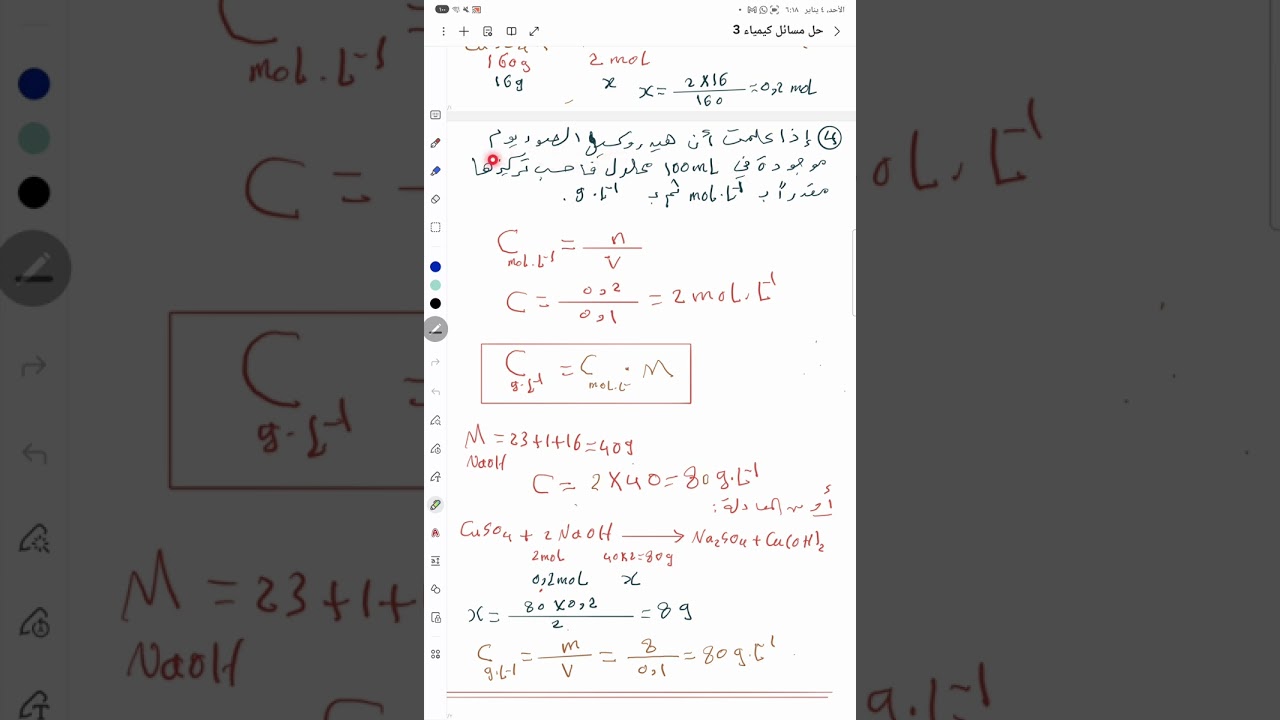 الأحد، ٤ يناير ٦:١٨
حل مسائل كيمياء 3
160g 2 mol
16g x x = 2×16 / 160 = 0,2 mol
④ إذا علمت أن هيدروكسيل الصوديوم
موجودة في 100mL محلول فاحسب تركيزها
مقدراً بـ mol.L⁻¹ ثم بـ g.L⁻¹ .
C mol.L⁻¹ = n / V
C = 0,2 / 0,1 = 2 mol.L⁻¹
C g.L⁻¹ = C mol.L⁻ . M
M NaOH = 23+1+16=40g
C = 2×40=80g.L⁻¹
أو من المعادلة:
CuSO4 + 2NaOH → Na2SO4 + Cu(OH)2
2mol 40×2=80g
0,2mol x
x = 80×0,2 / 2 = 8 g
C g.L⁻¹ = m / V = 8 / 0,1 = 80g.L⁻¹